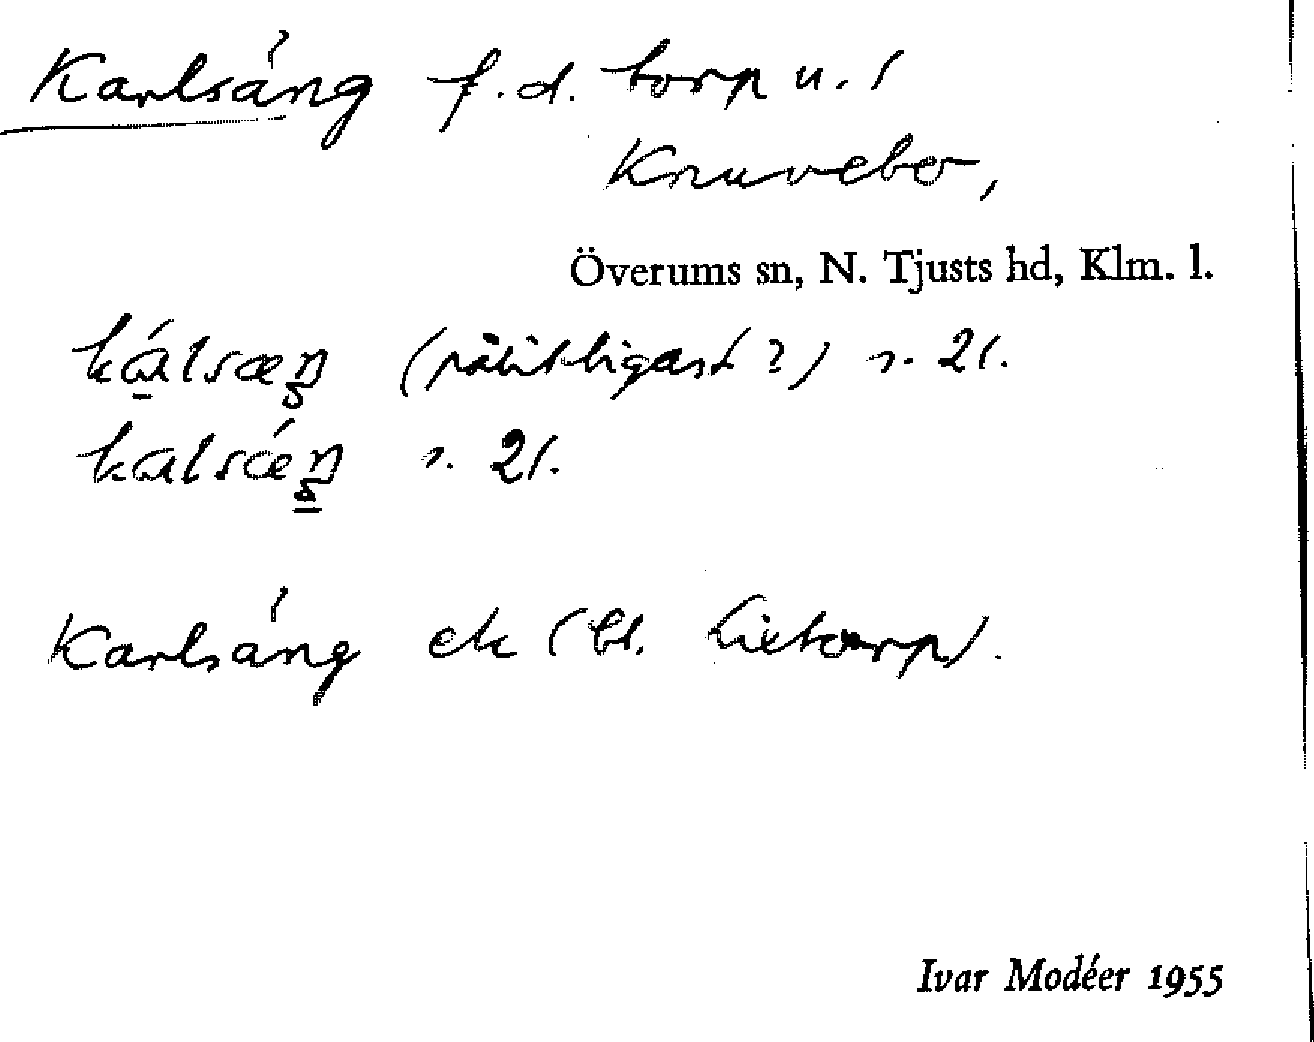 Karlsäng f.d. torp u. /
Knuvebo,
Överums sn, N. Tjusts hd, Klm. l.
kálsæŋ (pålitligast?) s. 21.
kalsǽŋ s. 21.
Karlsäng ek (bl. Lietorp).
Ivar Modéer 1955